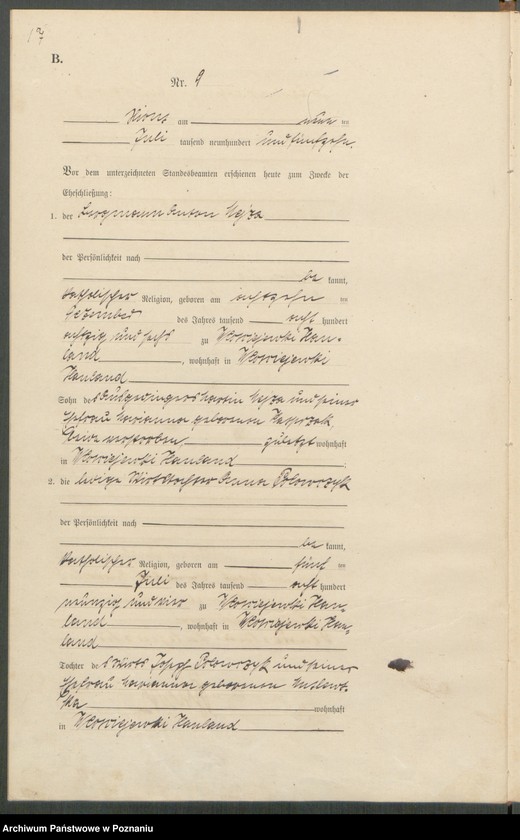 B.
Nr. 9
Xions am neun ten
Juli tausend neunhundert und fünfzehn.
Vor dem unterzeichneten Standesbeamten erschienen heute zum Zwecke der
Eheschließung:
1. der Bergmann Anton
der Persönlichkeit nach
be kannt,
katholischer Religion, geboren am achtzehn ten
Dezember des Jahres tausend acht hundert
achtzig und sechs zu Wlosciejewki Hau-
land, wohnhaft in Wlosciejewki
Hauland
Sohn des Martin und seiner
Ehefrau Marianna geborenen Kasprzak,
zuletzt wohnhaft
in Wlosciejewki Hauland
2. die ledige Wirtstochter Anna
der Persönlichkeit nach
be kannt,
katholischer Religion, geboren am fünf ten
Juli des Jahres tausend acht hundert
neunzig und vier zu Wlosciejewki Hau-
land, wohnhaft in Wlosciejewki Hau-
land
Tochter des Wirts Josef und seiner
Ehefrau Marianna geborenen
ka wohnhaft
in Wlosciejewki Hauland
Archiwum Państwowe w Poznaniu